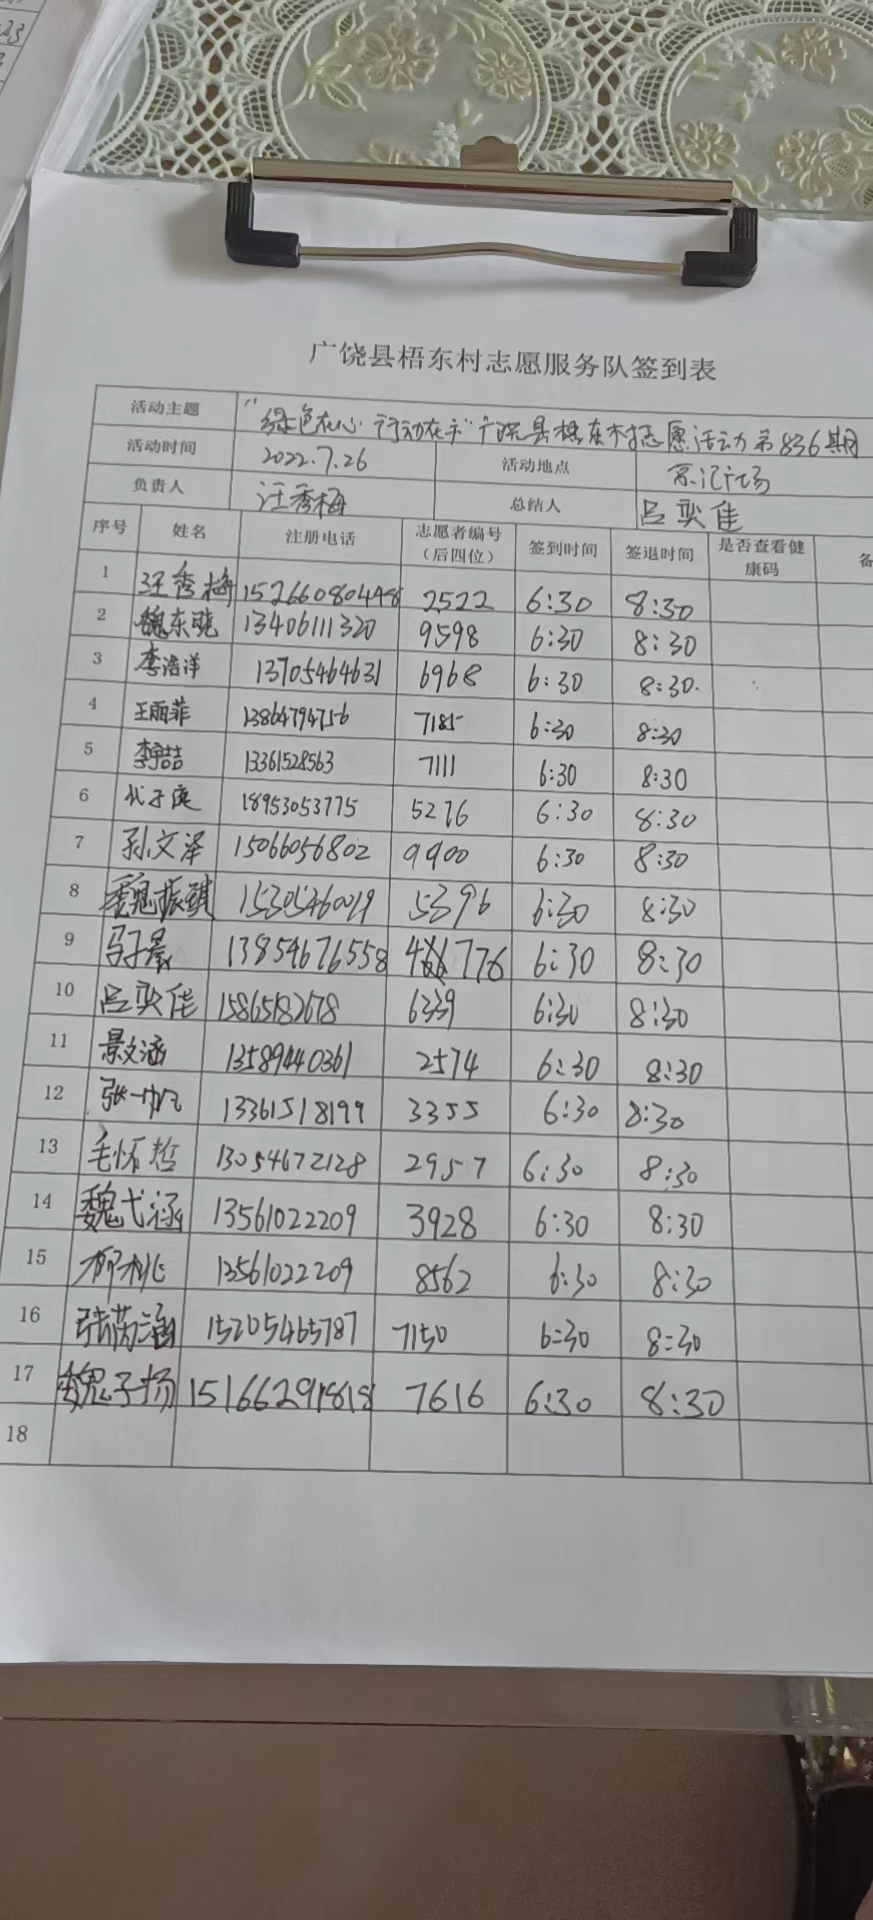 广饶县梧东村志愿服务队签到表
活动主题 "绿色在心 行动在手"广饶县梧东村志愿活动第836期
活动时间 2022.7.26 活动地点 广场
负责人 汪秀梅 总结人 吕奕佳
序号 姓名 注册电话 志愿者编号（后四位） 签到时间 签退时间 是否查看健康码 备
1 汪秀梅 15266080448 2522 6:30 8:30
2 魏东晓 13406111320 9598 6:30 8:30
3 李浩洋 13705464631 6968 6:30 8:30
4 王雨菲 13864794756 7185 6:30 8:30
5 13361528563 7111 6:30 8:30
6 18953053775 5276 6:30 8:30
7 孙文泽 15066056802 9900 6:30 8:30
8 魏振祺 15305460019 5396 6:30 8:30
9 马子晨 13854676558 6:30 8:30
10 吕奕佳 15865182678 6339 6:30 8:30
11 景文涵 13589440361 2574 6:30 8:30
12 张一帆 13361518199 3355 6:30 8:30
13 毛怀哲 13054672128 2957 6:30 8:30
14 魏弋涵 13561022209 3928 6:30 8:30
15 柳桃 13561022209 8562 6:30 8:30
16 张芮涵 15205465787 7150 6:30 8:30
17 魏子扬 15166291818 7616 6:30 8:30
18